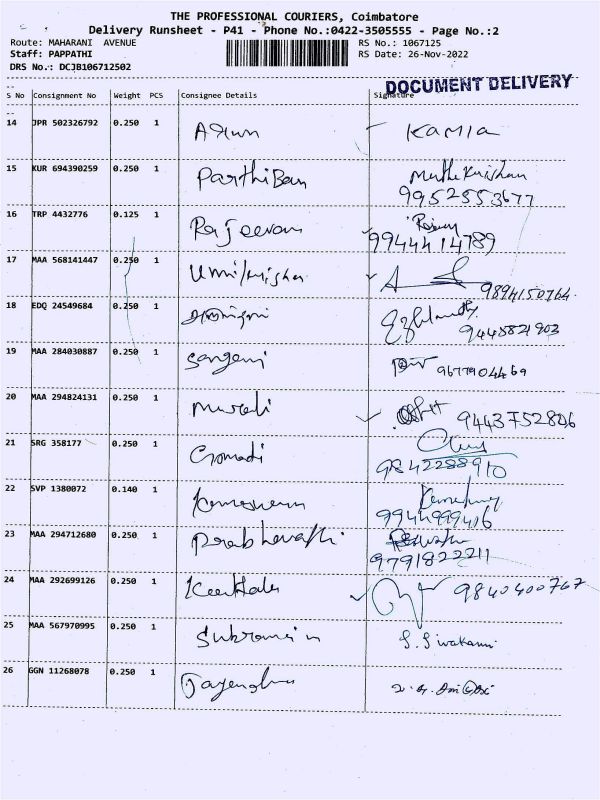 THE PROFESSIONAL COURIERS, Coimbatore
Delivery Runsheet - P41 - Phone No.:0422-3505555 - Page No.:2
Route: MAHARANI AVENUE RS No.: 1067125
Staff: PAPPATHI RS Date: 26-Nov-2022
DRS No.: DCJB106712502
DOCUMENT DELIVERY
S No Consignment No Weight PCS Consignee Details Signature
14 JPR 502326792 0.250 1 Arun Kamla
15 KUR 694390259 0.250 1 Parthiban
9952553677
16 TRP 4432776 0.125 1 Rajeevan
9944414789
17 MAA 568141447 0.250 1 Unnikrishan 9894150764
18 EDQ 24549684 0.250 1
9448821903
19 MAA 284030887 0.250 1 Sangeni 9677904469
20 MAA 294824131 0.250 1 Murali 9443752806
21 SRG 358177 0.250 1 Gomadi
9842288910
22 SVP 1380072 0.140 1
9944999416
23 MAA 294712680 0.250 1 Prabhavathi
9791822211
24 MAA 292699126 0.250 1 9840400767
25 MAA 567970995 0.250 1 S. Sivakami
26 GGN 11268078 0.250 1